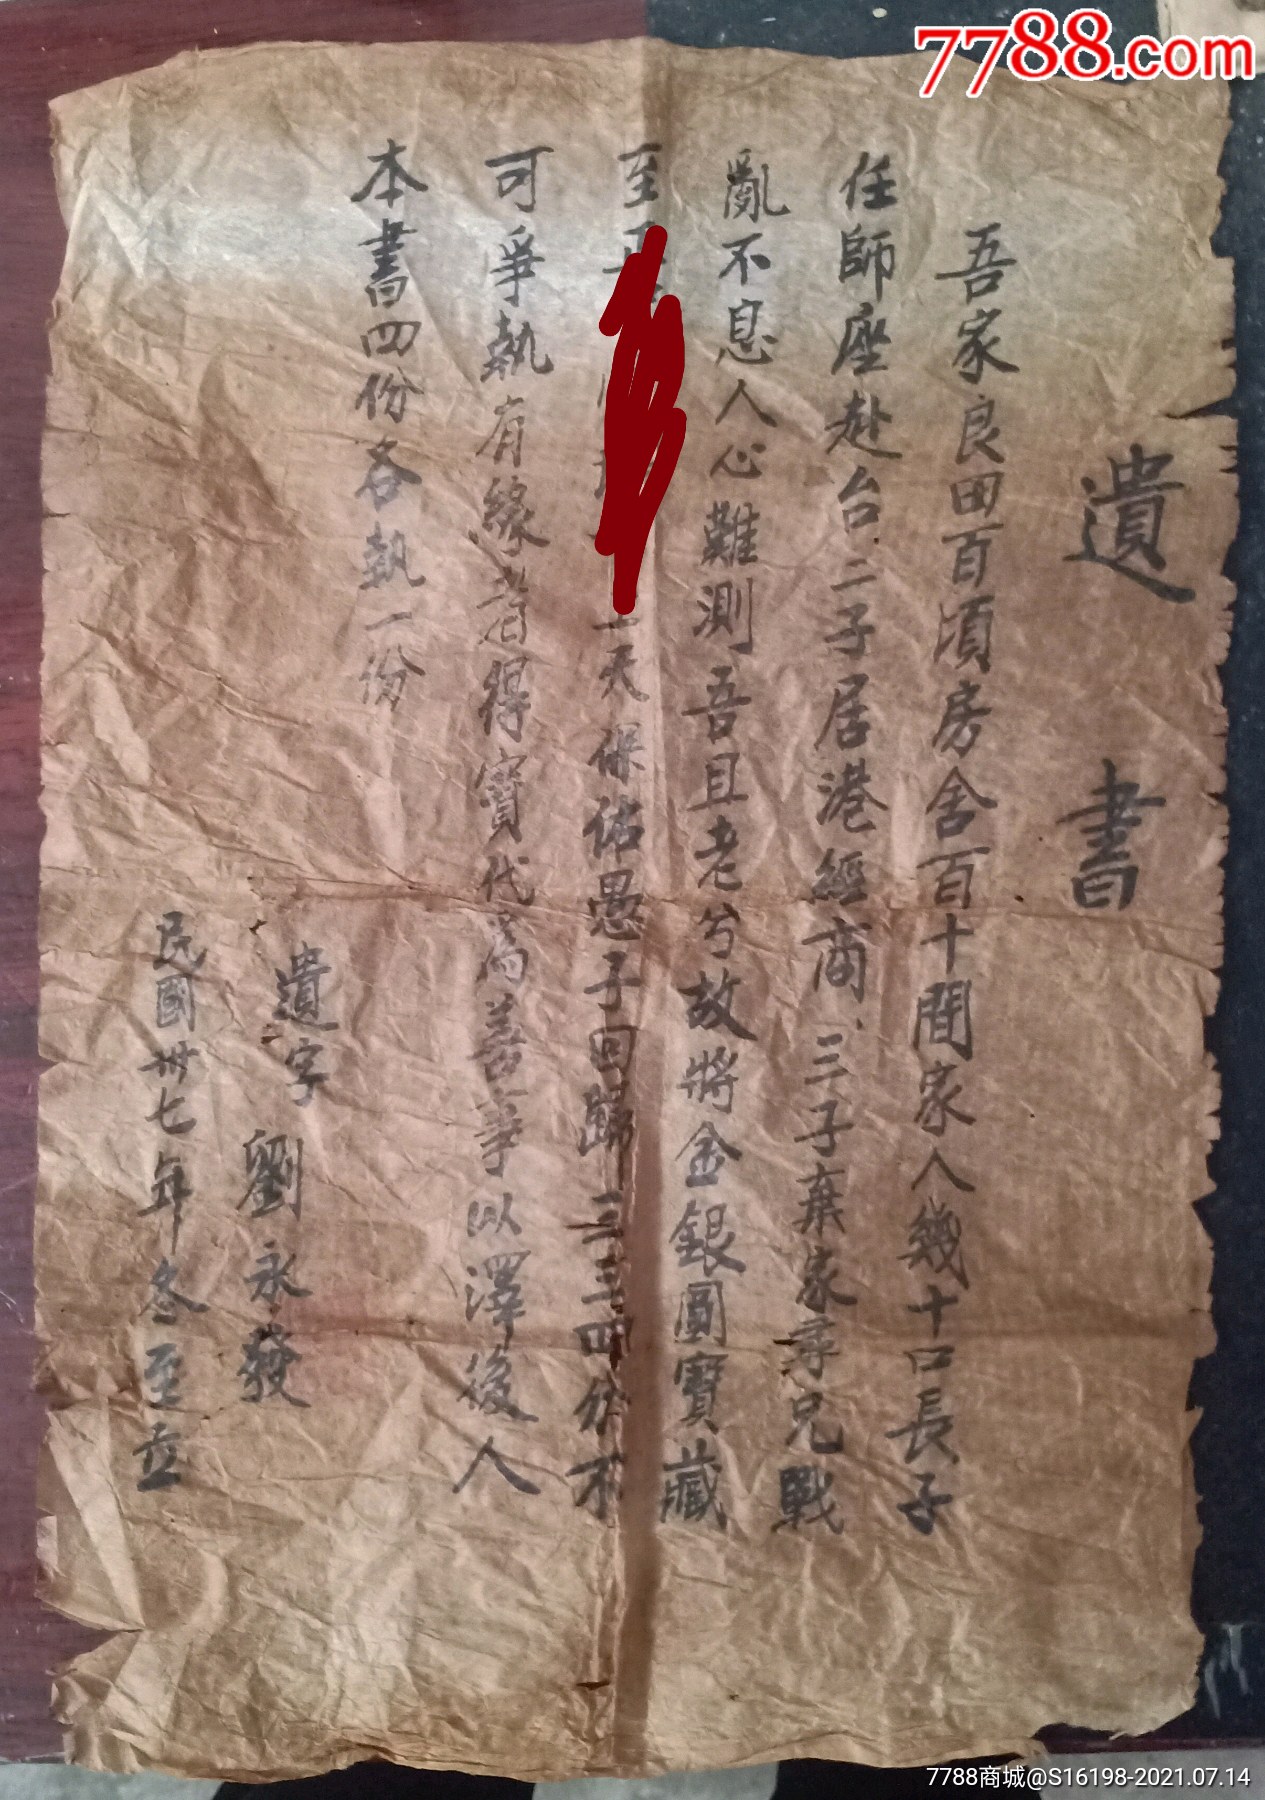 7788.com
遺書
吾家良田百頃房舍百十間家人幾十口長子
任師座赴台.二子居港經商.三子棄家尋兄戰
亂不息人心難測吾且老兮故將金銀圓寶藏
至 天保佑愚子回歸三三四份不
可爭執有緣者得寶代為善事以澤後人
本書四份各執一份
遺字 劉永發
民國卅七年冬至立
7788商城@S16198-2021.07.14